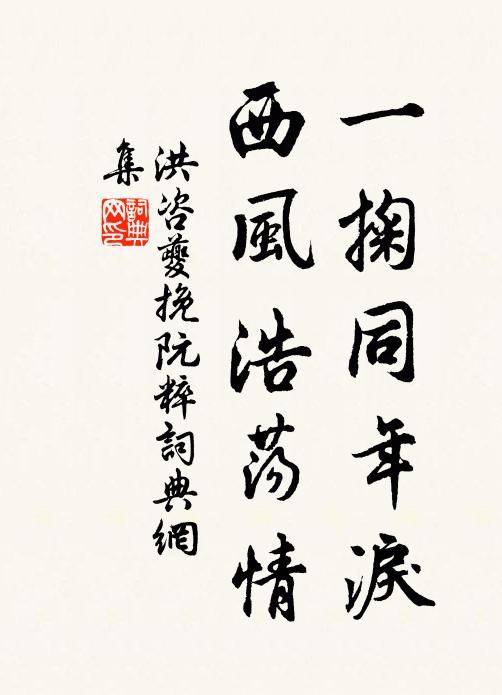 一掬同年淚
西風浩蕩情
洪咨夔挽阮粹詞典網
集
詞典網印